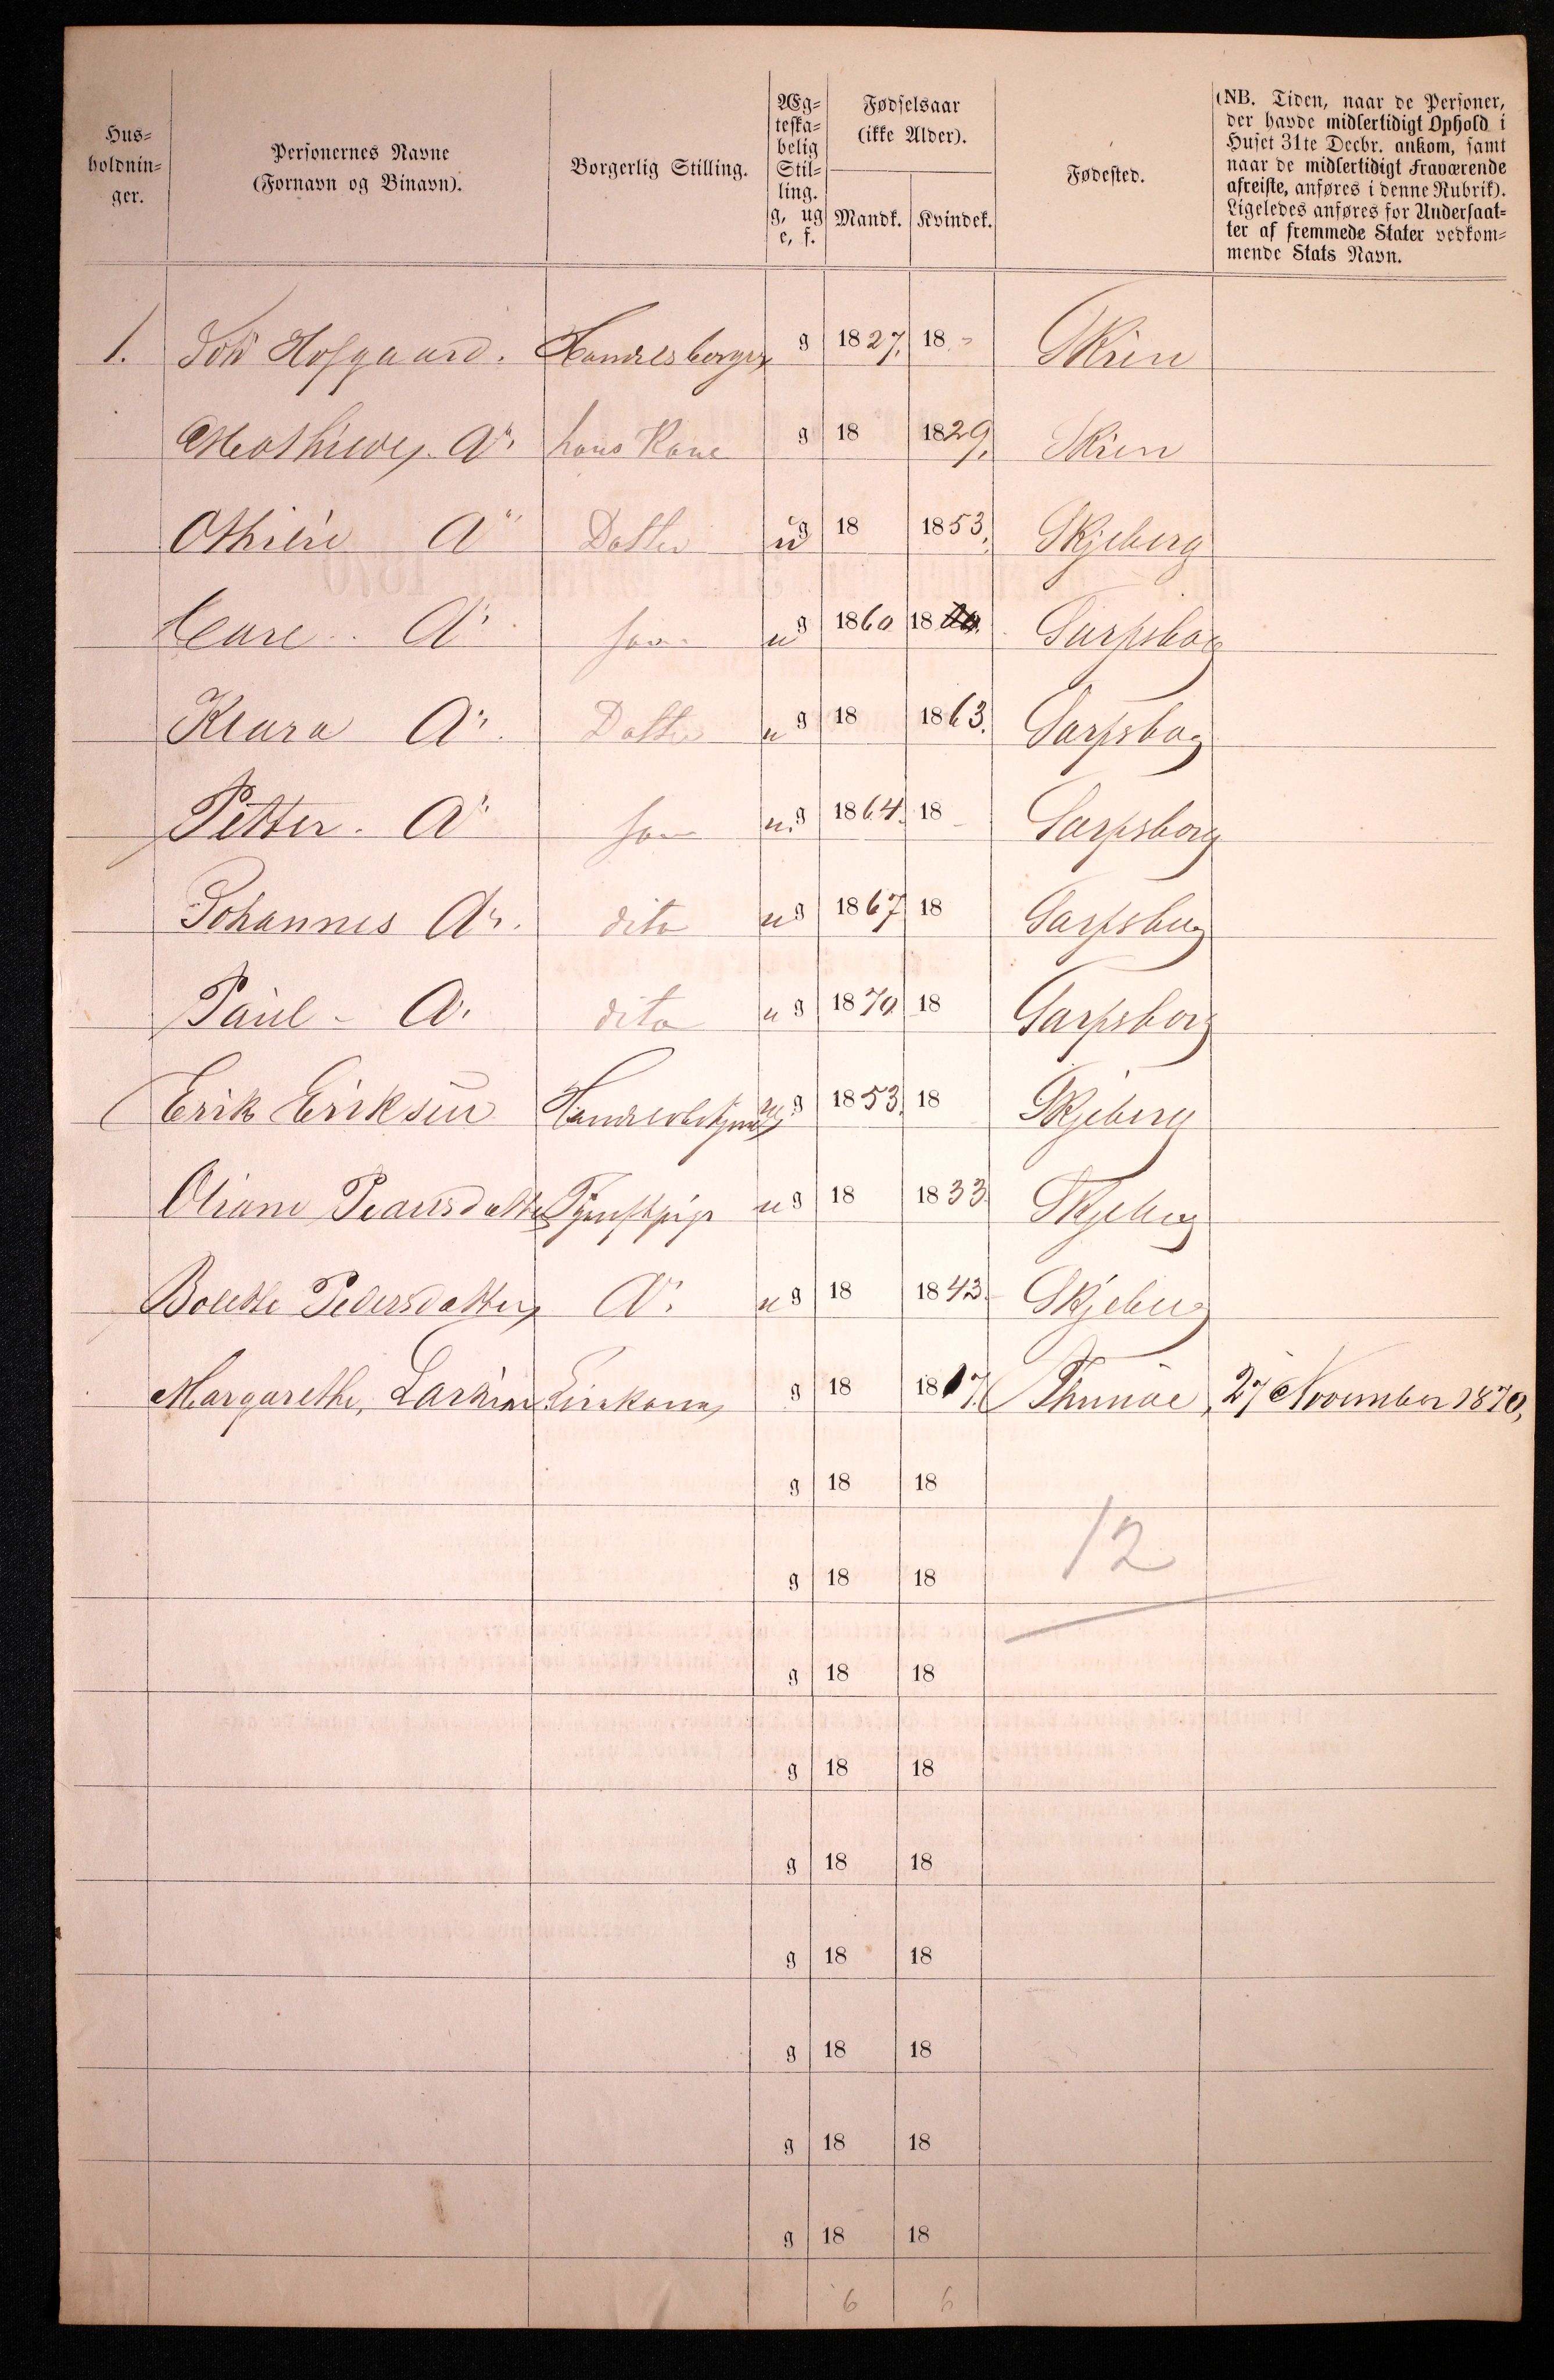 Hus-
holdnin-
ger.
Personernes Navne
(Fornavn og Binavn).
Borgerlig Stilling.
Æg-
teska-
belig
Stil-
ling.
g, ug
e, f.
Fødselsaar
(ikke Alder).
Mandk. Kvindek.
Fødested.
(NB. Tiden, naar de Personer,
der havde midlertidigt Ophold i
Huset 31te Decbr. ankom, samt
naar de midlertidigt Fraværende
afreiste, anføres i denne Rubrik).
Ligeledes anføres for Undersaat-
ter af fremmede Stater vedkom-
mende Stats Navn.
1. Hofgaard. Handelsborger g 1827. 18 - Skien
d: hans Kone g 18 1829. Skien
d: Datter ug 18 1853. Skjeberg
d: søn ug 1860 18 Sarpsborg
Klara d: Datter ug 18 1863. Sarpsborg
Petter. d: søn ug 1864. 18 Sarpsborg
Johannes d: dito ug 1867 18 Sarpsborg
Paul - d: dito ug 1870 18 Sarpsborg
Erik Eriksen ug 1853. 18 Skjeberg
Tjenestpige ug 18 1833. Skjeberg
Bolette Pedersdatter d: ug 18 1843. Skjeberg
Margarethe, g 18 1817. 27 November 1870,
g 18 18
12
g 18 18
g 18 18
g 18 18
g 18 18
g 18 18
g 18 18
g 18 18
g 18 18
6 6